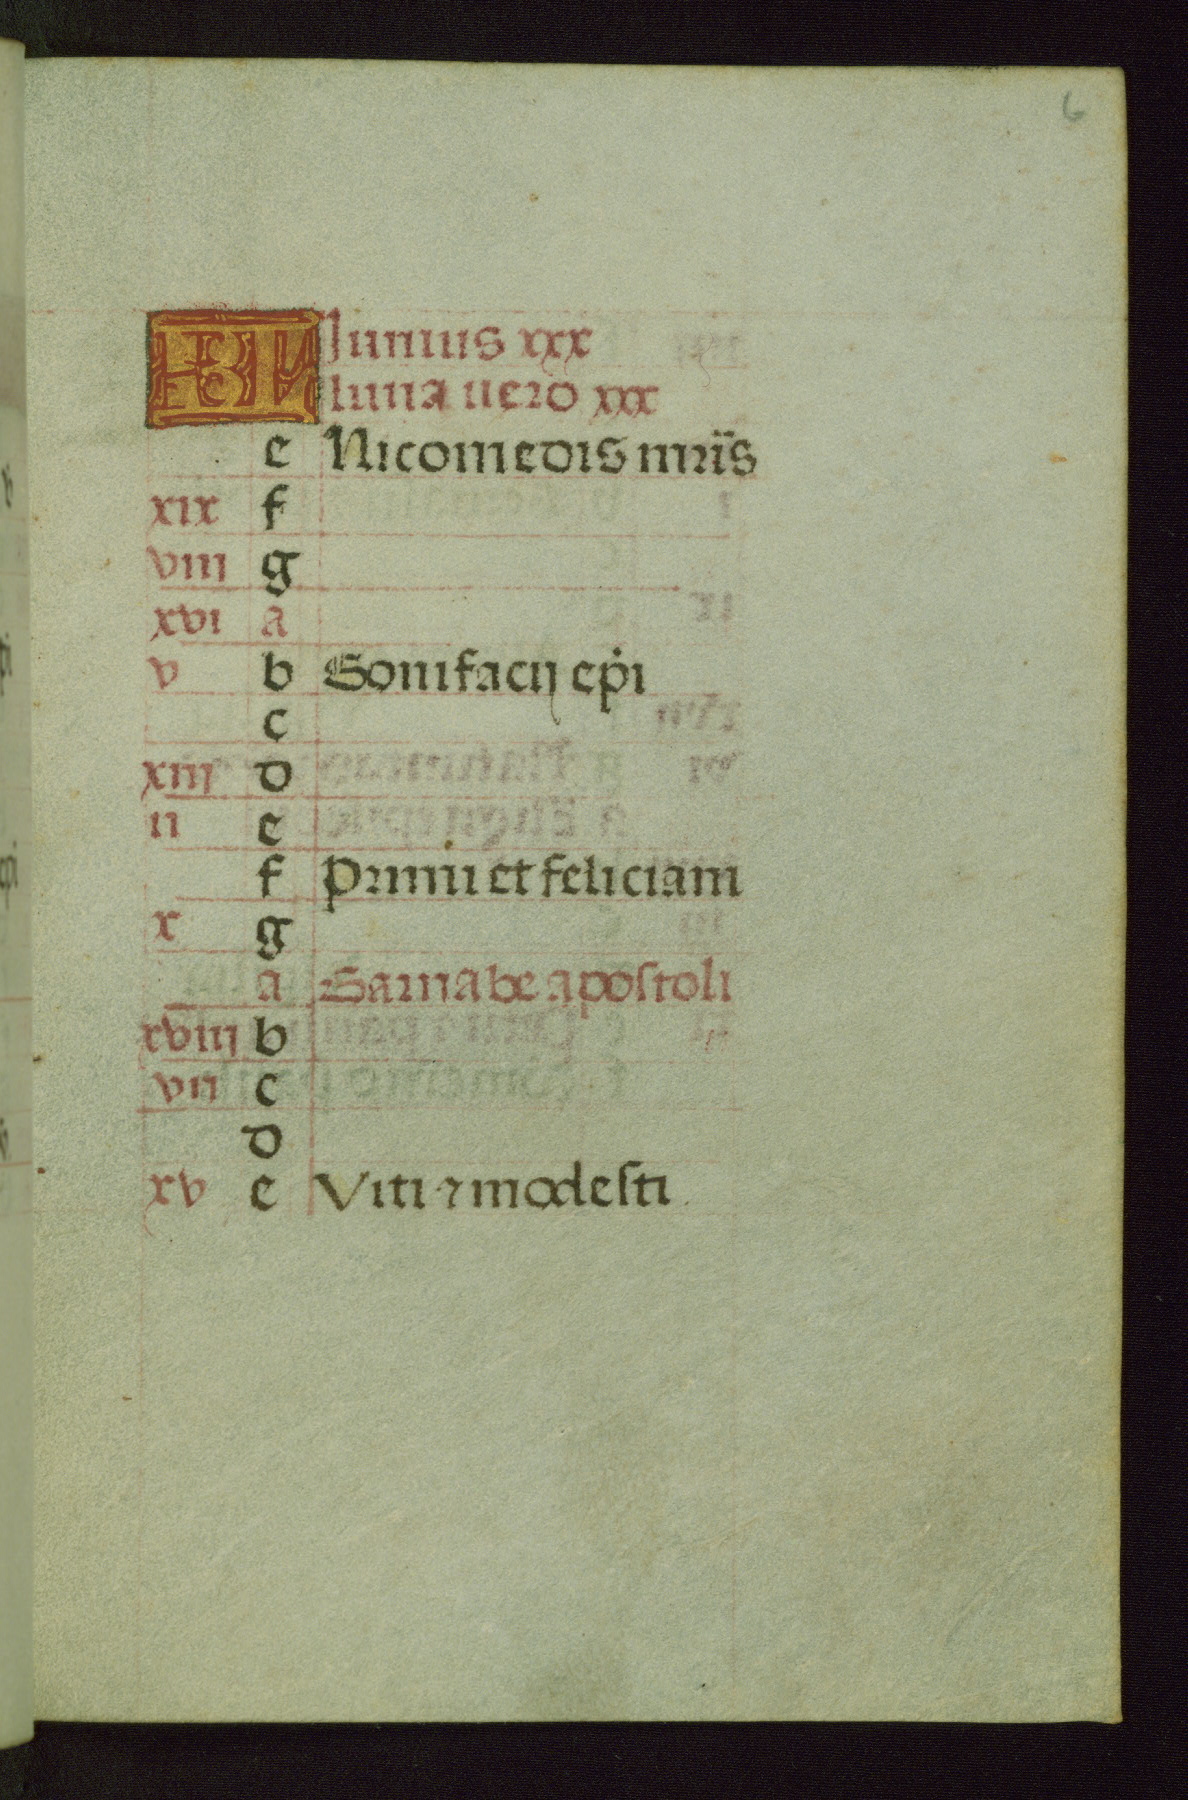 6
HABET Junius xxx
luna uero xxx
e Nicomedis mris
xix f
viii g
xvi a
v b Bonifacij epi
c
xiij d
ii e
f Primi et feliciani
x g
a Barnabe apostoli
xviij b
vii c
d
xv e Viti ⁊ modesti